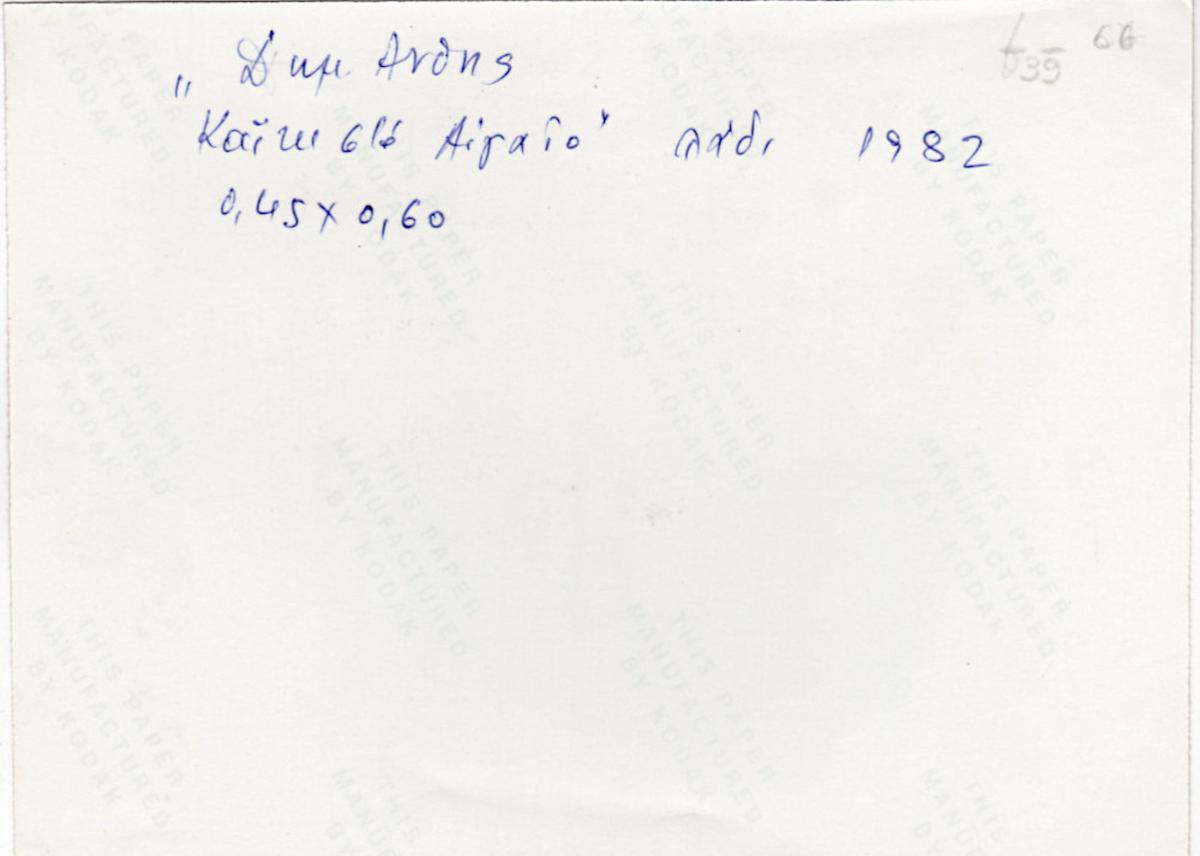 66
39
„ Δημ. Ανθης
Καΐκι στό Αιγαίο" λάδι 1982
0,45 x 0,60
THIS PAPER
MANUFACTURED
BY KODAK